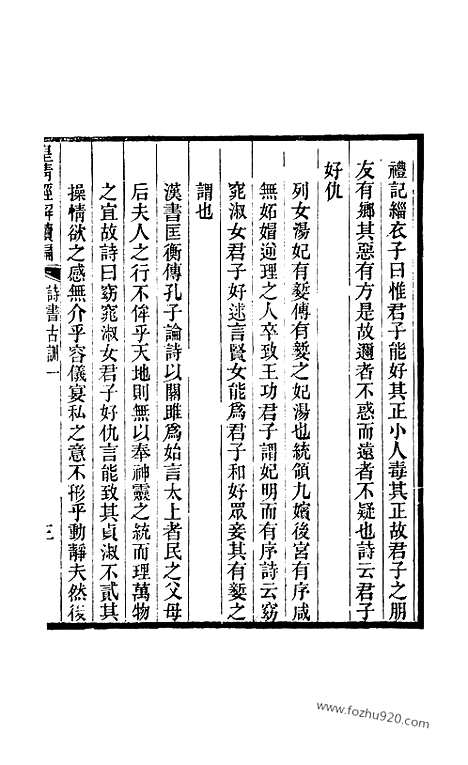 禮記緇衣子曰惟君子能好其正小人毒其正故君子之朋
友有鄉其惡有方是故邇者不惑而遠者不疑也詩云君子
好仇
列女湯妃有㜪傳有㜪之妃湯也統領九嬪後宮有序咸
無妬媢逆理之人卒致王功君子謂妃明而有序詩云窈
窕淑女君子好逑言賢女能爲君子和好眾妾其有㜪之
謂也
漢書匡衡傳孔子論詩以關雎爲始言太上者民之父母
后夫人之行不侔乎天地則無以奉神靈之統而理萬物
之宜故詩曰窈窕淑女君子好仇言能致其貞淑不貳其
操情欲之感無介乎容儀宴私之意不形乎動靜夫然後
皇清經解續編 詩書古訓一 三
www.fozhu920.com